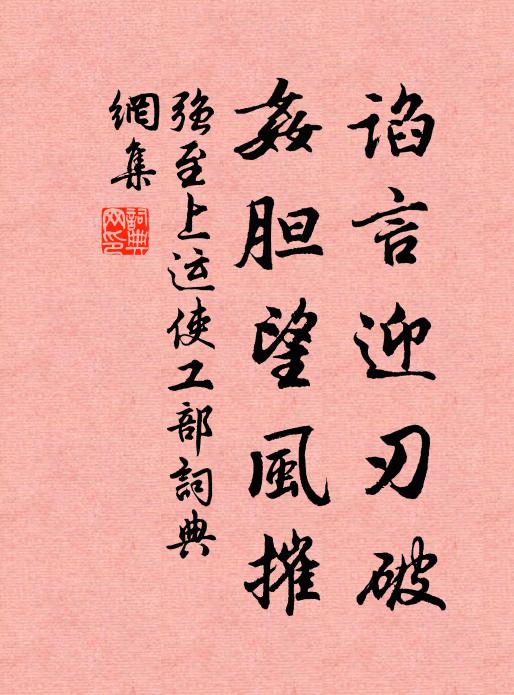 谄言迎刃破
姦胆望風摧
强至上运使工部詞典
網集
詞典
网印